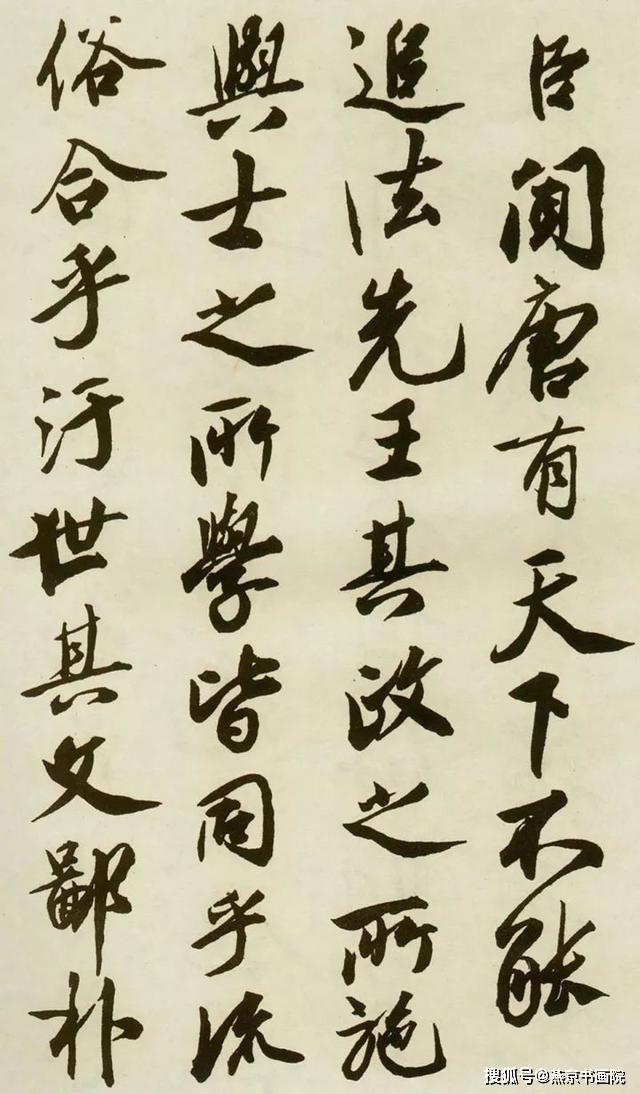 臣聞唐有天下不能
追法先王其政之所施
與士之所學皆同乎流
俗合乎汙世其文鄙朴
搜狐号@燕京书画院